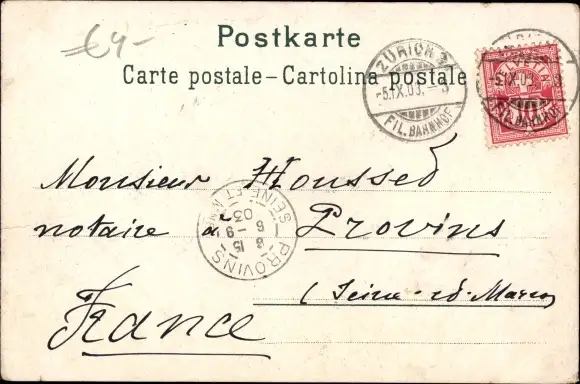 €4-
Postkarte
Carte postale – Cartolina postale
ZÜRICH
-5.IX.03.-
FIL. BAHNHOF
HELVETIA
-5.IX.03.
FIL. BAHNHOF
Monsieur Houssed
notaire à Provins
(Seine-et-Marne)
France
PROVINS
8 15
6 - 9
03
SEINE ET MNE